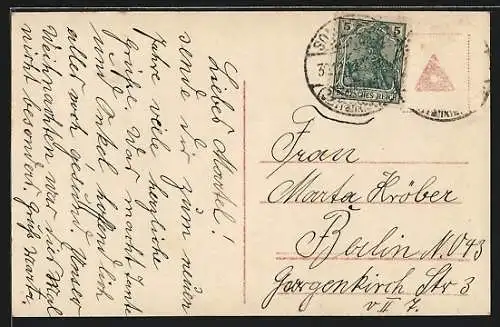 Liebes Martel!
sende Dir zum neuen
Jahre viele herzliche
Grüße. Was macht Tante
und Onkel hoffendlich
alles noch gesund. Unser
Weihnachten war dies Mal
nicht besonders. Gruß Marta.
5 5
DEUTSCHES REICH
Frau
Marta Kröber
Berlin N.O43
Georgenkirch Str 3
v II 7.